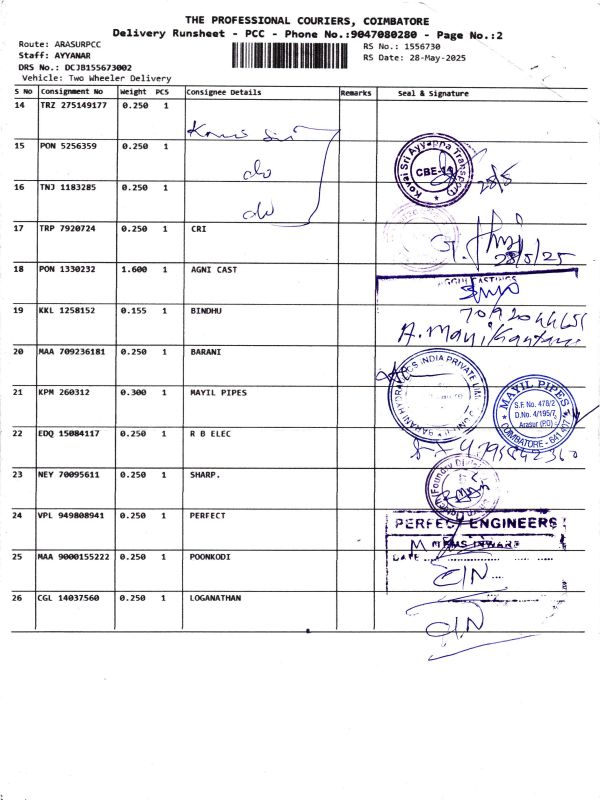 THE PROFESSIONAL COURIERS, COIMBATORE
Delivery Runsheet - PCC - Phone No.:9047080280 - Page No.:2
Route: ARASURPCC
RS No.: 1556730
Staff: AYYANAR
RS Date: 28-May-2025
DRS No.: DCJB155673002
Vehicle: Two Wheeler Delivery
S No Consignment No Weight PCS Consignee Details Remarks Seal & Signature
14 TRZ 275149177 0.250 1
15 PON 5256359 0.250 1
do
Kovai Sri Ayyappa Transport
CBE-14
28/5
16 TNJ 1183285 0.250 1
do
17 TRP 7920724 0.250 1 CRI
28/5/25
18 PON 1330232 1.600 1 AGNI CAST
19 KKL 1258152 0.155 1 BINDHU
A. Manikandan
20 MAA 709236181 0.250 1 BARANI
BARANI HYDRAULICS INDIA PRIVATE LIMITED
21 KPM 260312 0.300 1 MAYIL PIPES
MAYIL PIPES
S.F. No. 478/2
D.No. 4/195/7
Arasur (PO)
COIMBATORE - 641 407
22 EDQ 15084117 0.250 1 R B ELEC
23 NEY 70095611 0.250 1 SHARP.
(Foundry Division)
24 VPL 949808941 0.250 1 PERFECT
PERFECT ENGINEERS
DATE
25 MAA 9000155222 0.250 1 POONKODI
C/N
26 CGL 14037560 0.250 1 LOGANATHAN
C/N